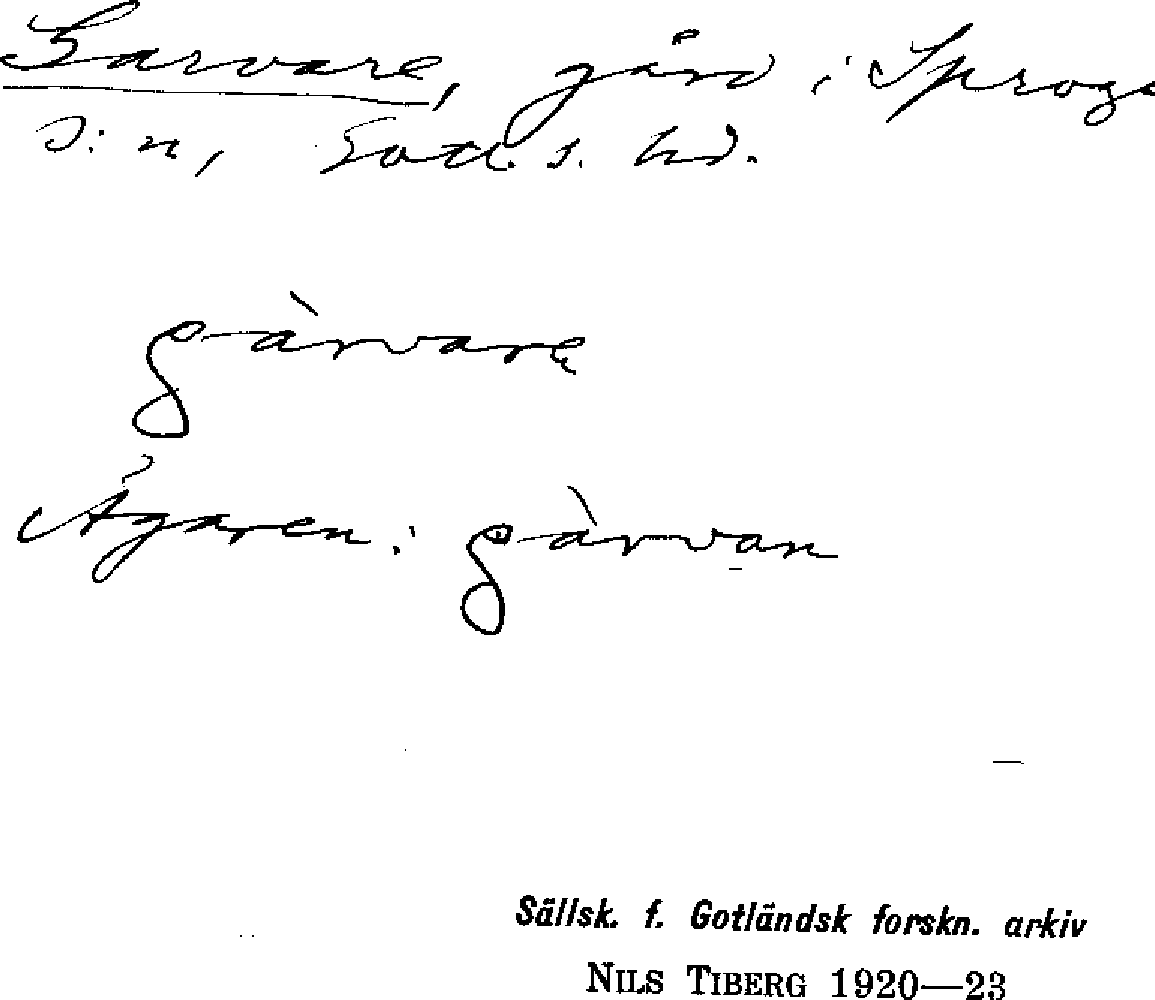 Garvare, gård i Sproge
s:n, Gotl. s. hd.
gàrvare
Ägaren: gàrvan
Sällsk. f. Gotländsk forskn. arkiv
NILS TIBERG 1920—23